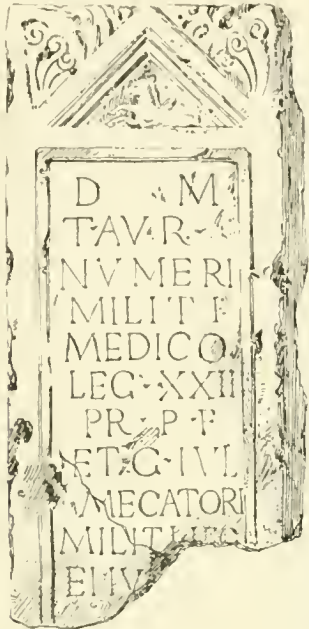 D M
T·AVR·
NVMERI
MILITI
MEDICO
LEG·XXII
PR·P·F
ET·G·IVL
AMECATORI
MILITI LEG
EI IV